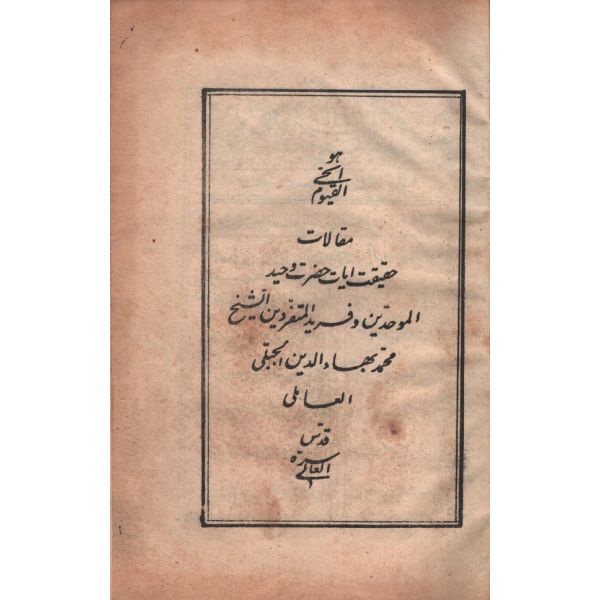 هو
الحیّ
القیوم
مقالات
حقیقت ایات حضرت وحید
الموحدین و فرید المتفردین الشیخ
محمّد بهاء الدین الجبلی
العاملی
قدّس
سرّه
العالی